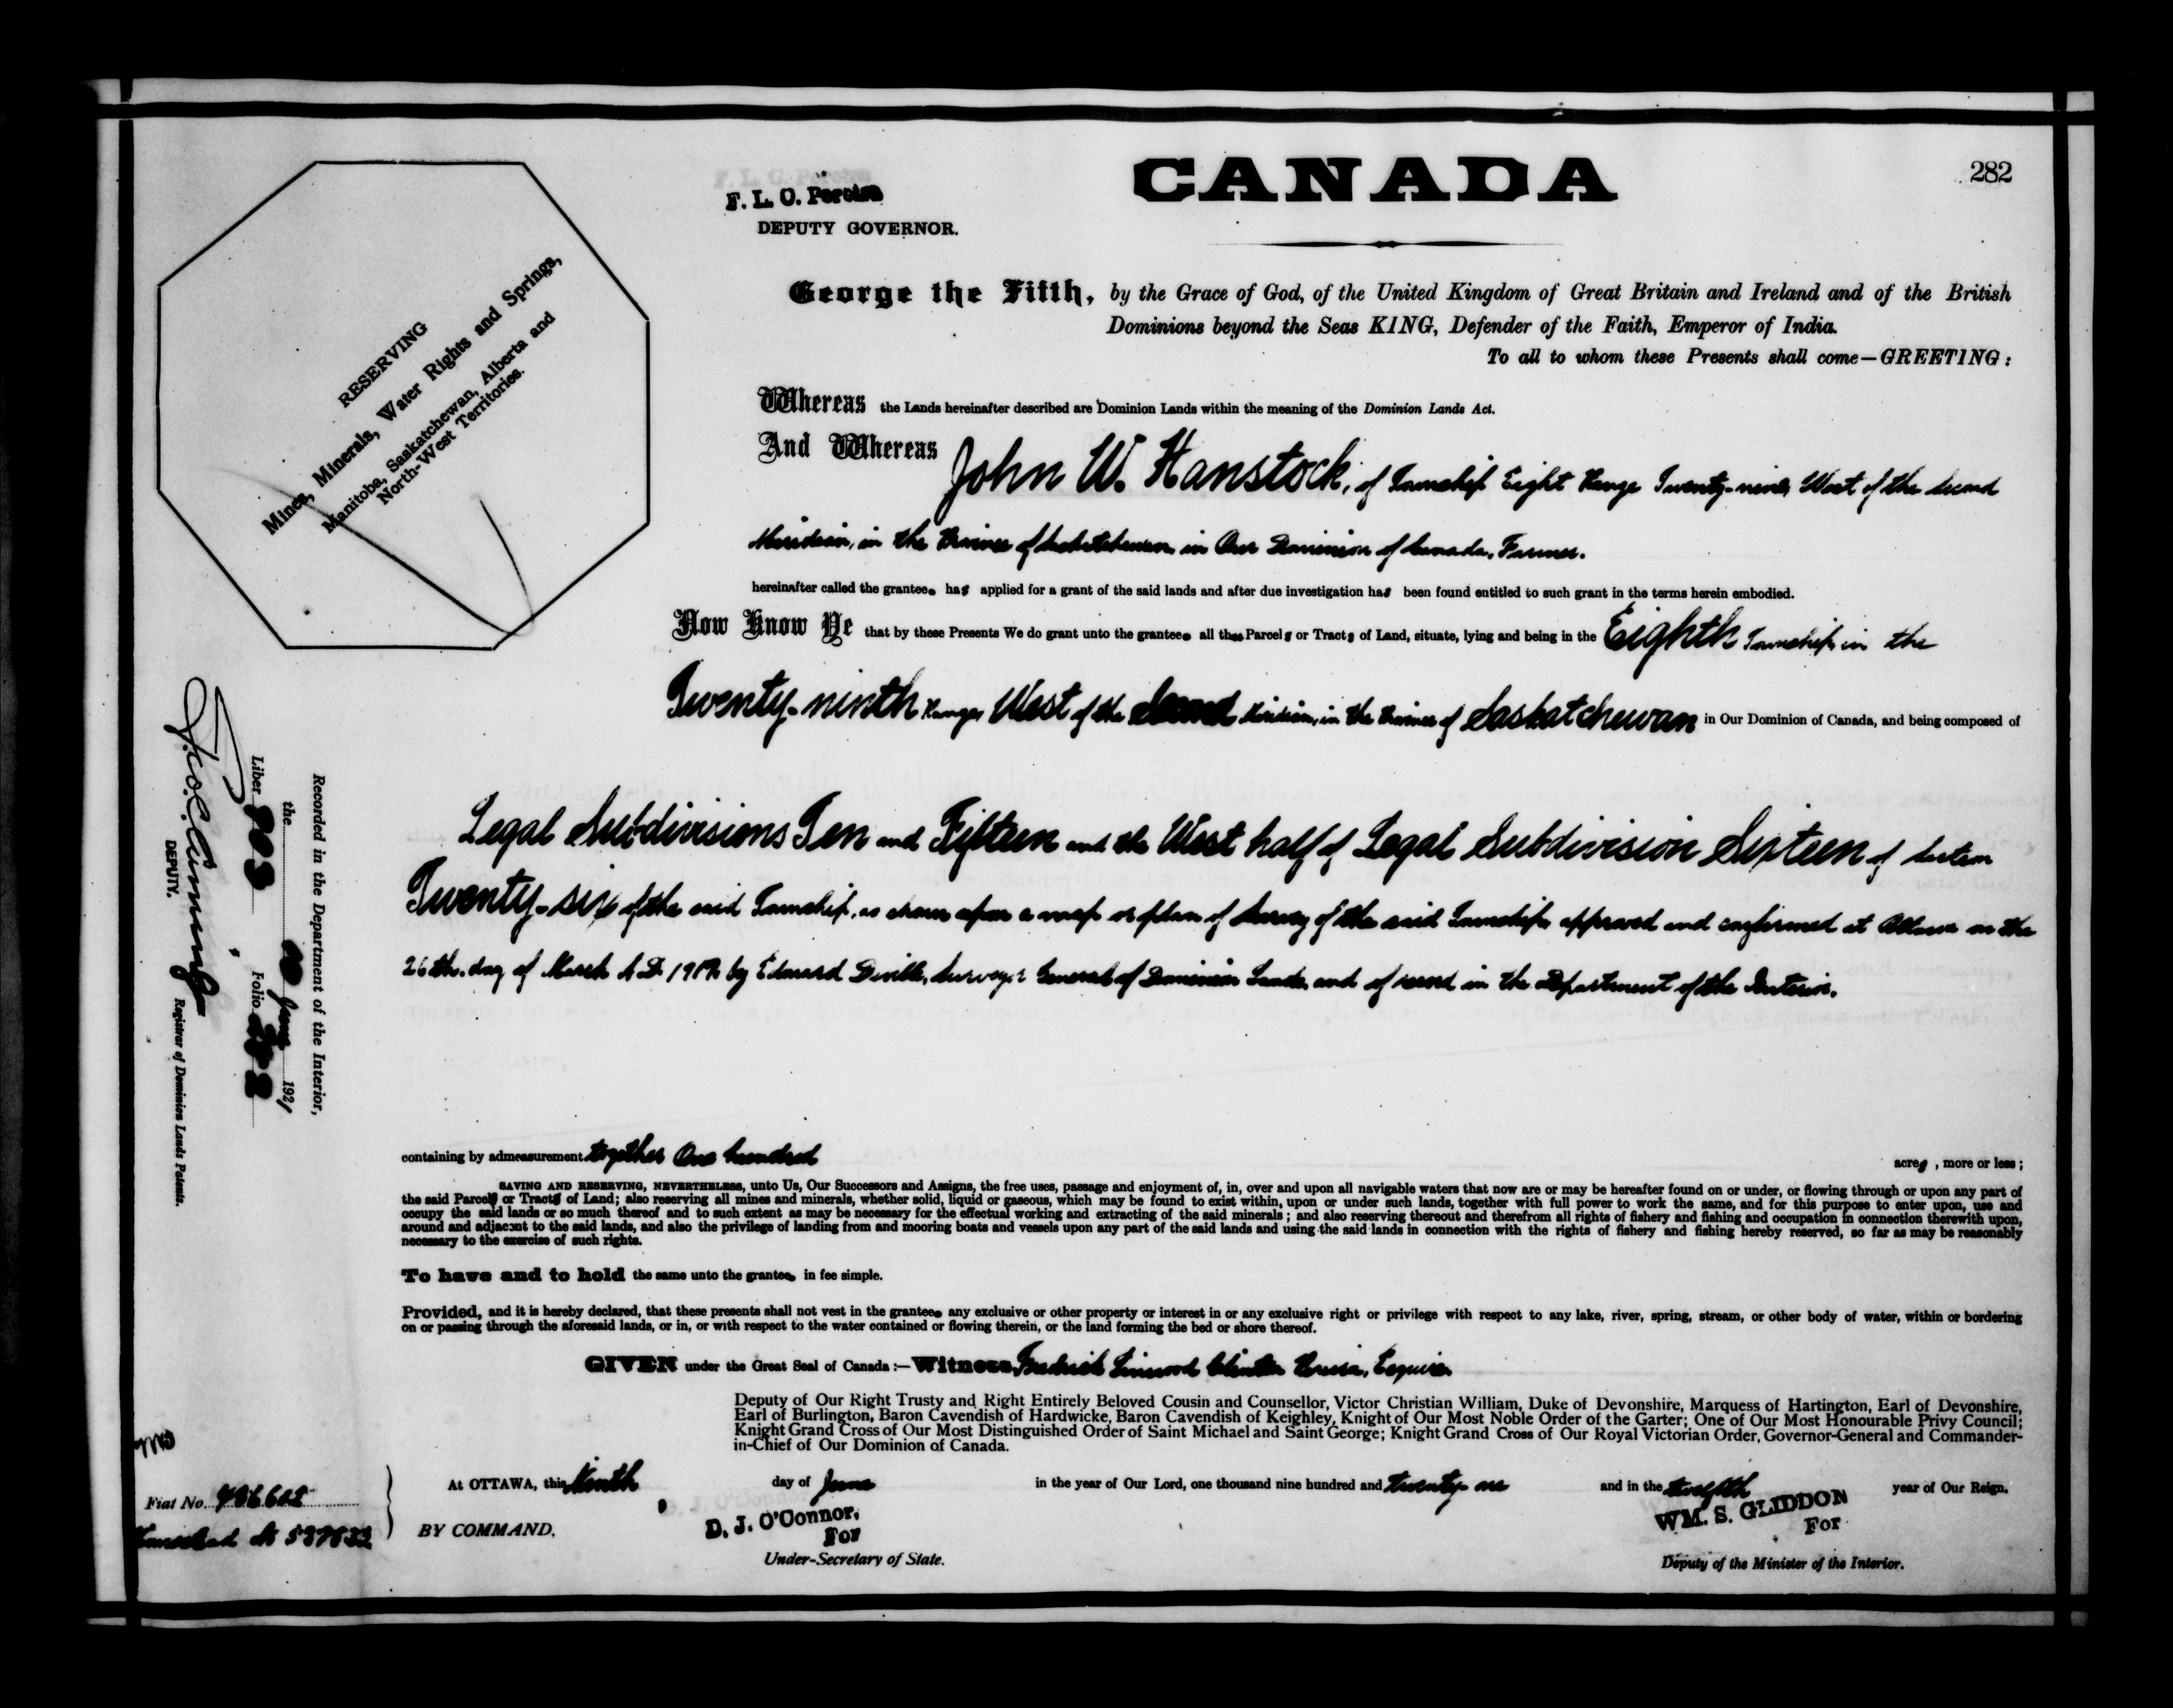 CANADA
282
F. L. C. Pereira
DEPUTY GOVERNOR.
RESERVING
Mines, Minerals, Water Rights and Springs,
Manitoba, Saskatchewan, Alberta and
North-West Territories.
George the Fifth, by the Grace of God, of the United Kingdom of Great Britain and Ireland and of the British
Dominions beyond the Seas KING, Defender of the Faith, Emperor of India.
To all to whom these Presents shall come—GREETING:
Whereas the Lands hereinafter described are Dominion Lands within the meaning of the Dominion Lands Act.
And Whereas John W. Hanstock, of Township Eight Range Twenty-nine, West of the Second
Meridian, in the Province of Saskatchewan, in Our Dominion of Canada, Farmer.
hereinafter called the grantee has applied for a grant of the said lands and after due investigation has been found entitled to such grant in the terms herein embodied.
Now Know Ye that by these Presents We do grant unto the grantee all those Parcels or Tracts of Land, situate, lying and being in the Eighth Township, in the
Twenty-ninth Range, West of the Second Meridian, in the Province of Saskatchewan in Our Dominion of Canada, and being composed of
Legal Subdivisions Ten and Fifteen and the West half of Legal Subdivision Sixteen of Section
Twenty-six of the said Township, as shown upon a map or plan of Survey of the said Township, approved and confirmed at Ottawa on the
26th. day of March A.D. by Edouard Deville, Surveyor General of Dominion Lands, and of record in the Department of the Interior.
containing by admeasurement together One hundred acres, more or less;
SAVING AND RESERVING, NEVERTHELESS, unto Us, Our Successors and Assigns, the free uses, passage and enjoyment of, in, over and upon all navigable waters that now are or may be hereafter found on or under, or flowing through or upon any part of
the said Parcels or Tracts of Land; also reserving all mines and minerals, whether solid, liquid or gaseous, which may be found to exist within, upon or under such lands, together with full power to work the same, and for this purpose to enter upon, use and
occupy the said lands or so much thereof and to such extent as may be necessary for the effectual working and extracting of the said minerals; and also reserving thereout and therefrom all rights of fishery and fishing and occupation in connection therewith upon,
around and adjacent to the said lands, and also the privilege of landing from and mooring boats and vessels upon any part of the said lands and using the said lands in connection with the rights of fishery and fishing hereby reserved, so far as may be reasonably
necessary to the exercise of such rights.
To have and to hold the same unto the grantee in fee simple.
Provided, and it is hereby declared, that these presents shall not vest in the grantee any exclusive or other property or interest in or any exclusive right or privilege with respect to any lake, river, spring, stream, or other body of water, within or bordering
on or passing through the aforesaid lands, or in, or with respect to the water contained or flowing therein, or the land forming the bed or shore thereof.
GIVEN under the Great Seal of Canada:—Witness Frederick Linwood Clinton Pereira, Esquire
Deputy of Our Right Trusty and Right Entirely Beloved Cousin and Counsellor, Victor Christian William, Duke of Devonshire, Marquess of Hartington, Earl of Devonshire,
Earl of Burlington, Baron Cavendish of Hardwicke, Baron Cavendish of Keighley, Knight of Our Most Noble Order of the Garter; One of Our Most Honourable Privy Council;
Knight Grand Cross of Our Most Distinguished Order of Saint Michael and Saint George; Knight Grand Cross of Our Royal Victorian Order, Governor-General and Commander-
in-Chief of Our Dominion of Canada.
At OTTAWA, this Ninth day of June in the year of Our Lord, one thousand nine hundred and twenty one and in the twelfth year of Our Reign.
BY COMMAND.
D. J. O'Connor,
For
Under-Secretary of State.
WM. S. GLIDDON
For
Deputy of the Minister of the Interior.
Recorded in the Department of the Interior,
the June 1921
Liber 903 Folio 282
DEPUTY. Registrar of Dominion Lands Patents.
Fiat No.
Homestead